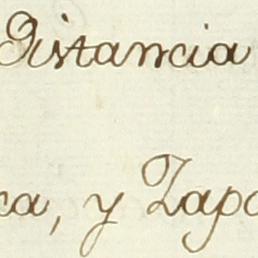 Distancia
ca, y Zapo